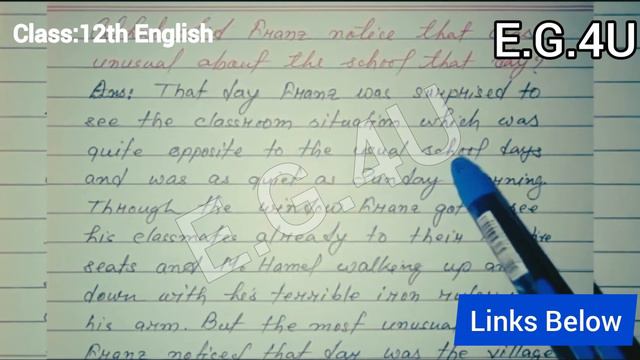 Class:12th English
E.G.4U
Franz notice that
unusual about the school that day?
Ans: That day Franz was surprised to
see the classroom situation which was
quite opposite to the usual school days
and was as quiet as Sunday
Through the window Franz got see
his classmates already to their
seats and M. Hamel walking up
down with his terrible iron
his arm. But the most unusual
Franz noticed that day was the village
E.G.4U
Links Below